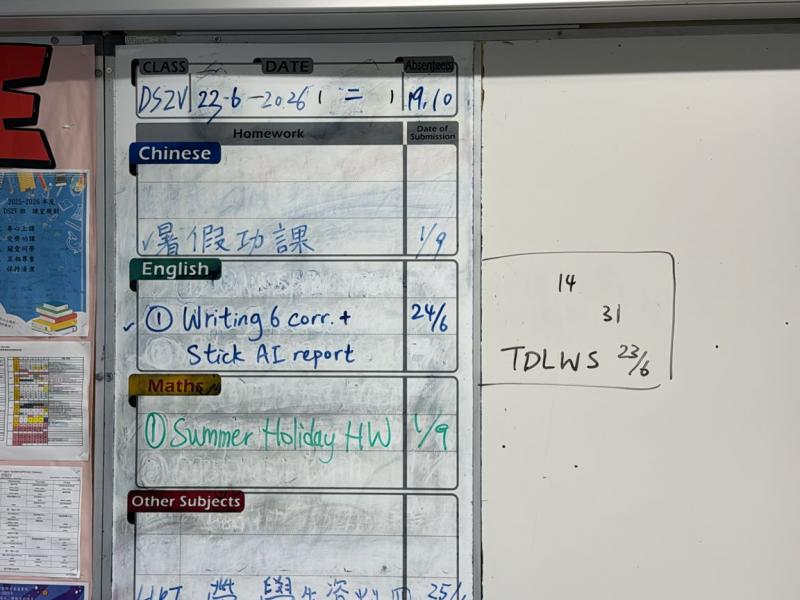 CLASS DATE Absentee(s)
DS2V 23-6-2026 ( 二 ) 19,10
Homework Date of Submission
Chinese
✓暑假功課 1/9
English
✓ ① Writing 6 corr. + 24/6
Stick AI report
Maths
① Summer Holiday HW 1/9
Other Subjects
學生資料 25/
14
31
TDLWS 23/6
2025-2026 年度
DS2V 班 課室規則
專心上課
交齊功課
關愛同學
互相尊重
保持清潔